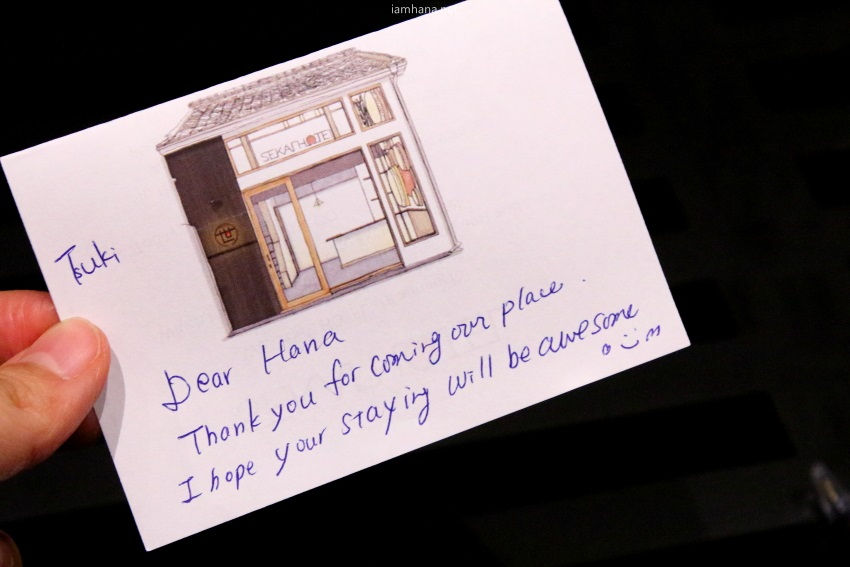 iamhana.n
SEKAI HOTEL
世
Tsuki
Dear Hana
Thank you for coming our place.
I hope your staying will be awesome